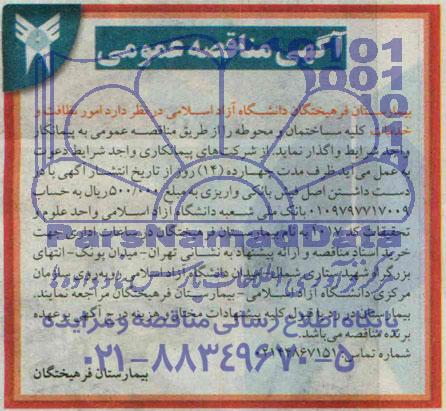 آگهی مناقصه عمومی
بیمارستان فرهیختگان دانشگاه آزاد اسلامی در نظر دارد امور نظافت و
خدمات کلیه ساختمان و محوطه را از طریق مناقصه عمومی به پیمانکار
واجد شرایط واگذار نماید. از شرکت‌های پیمانکاری واجد شرایط دعوت
به عمل می‌آید ظرف مدت چهارده (۱۴) روز از تاریخ انتشار آگهی با در
دست داشتن اصل فیش بانکی واریزی به مبلغ ۵۰۰/۰۰۰ ریال به حساب
۰۱۰۹۷۹۷۷۱۷۰۰۹ بانک ملی شعبه دانشگاه آزاد اسلامی واحد علوم و
تحقیقات کد ۱۰۱۷ به نام بیمارستان فرهیختگان در ساعات اداری جهت
خرید اسناد مناقصه و ارائه پیشنهاد به نشانی تهران- میدان پونک- انتهای
بزرگراه شهید ستاری شمال- میدان دانشگاه آزاد اسلامی روبه‌روی سازمان
مرکزی دانشگاه آزاد اسلامی- بیمارستان فرهیختگان مراجعه نمایند.
بیمارستان در رد یا قبول کلیه پیشنهادات مختار و هزینه درج آگهی برعهده
برنده مناقصه می‌باشد.
شماره تماس:
بیمارستان فرهیختگان
ParsNamadData
پایگاه اطلاع رسانی مناقصه و مزایده
۰۲۱-۸۸۳۴۹۶۷۰-۵